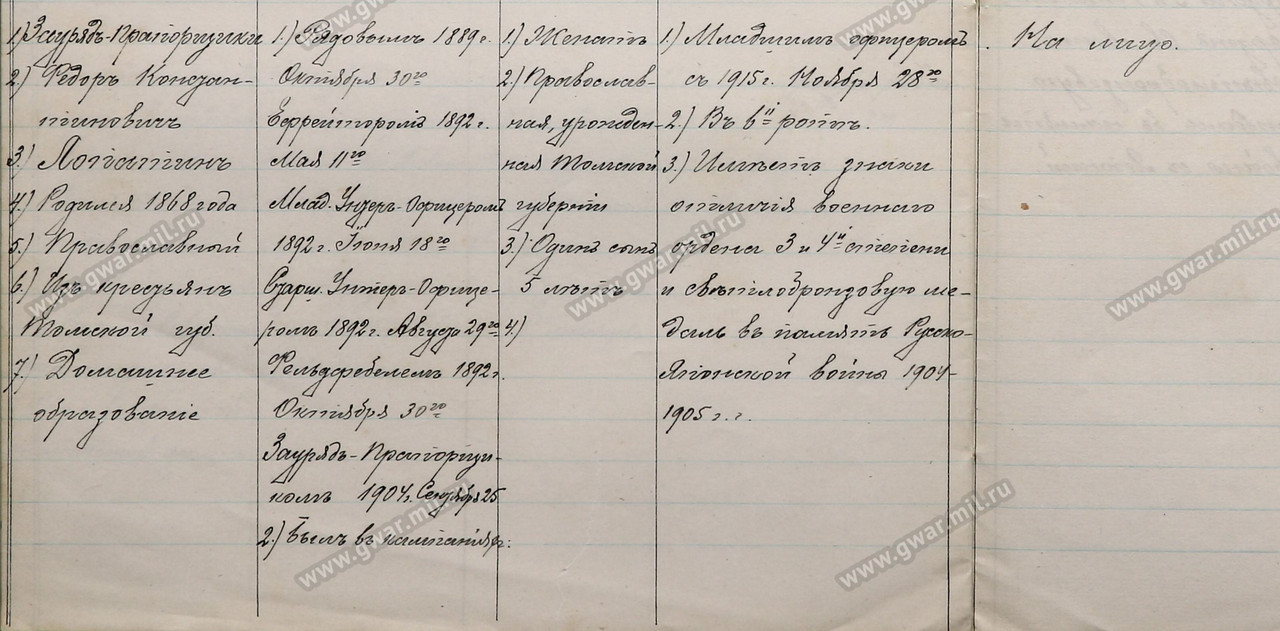 1) Заурядъ-Прапорщикъ
2.) Федоръ Констан-
тиновичъ
3.) Лопатинъ
4.) Родился 1868 года
5.) Православный
6.) Изъ крестьянъ
Томской губ.
7.) Домашнее
образованіе
1.) Рядовымъ 1889 г.
Октября 30го
Ефрейторомъ 1892 г.
Мая 11го
Млад. Унтеръ-Офицеромъ
1892 г. Іюня 18го
Старш. Унтеръ-Офице-
ромъ 1892 г. Августа 29го
Фельдфебелемъ 1892 г.
Октября 30го
Заурядъ-Прапорщи-
комъ 1904 г. Сентября 25
2.) Былъ въ кампаніях:
1.) Женатъ
2.) Православ-
ная, урожден-
ная Томской
губерніи
3.) Одинъ сынъ
5 лѣтъ
4.)
1.) Младшимъ офицеромъ
съ 1915 г. Ноября 28го
2.) Въ 6й ротѣ.
3.) Имѣетъ знаки
отличія военнаго
ордена 3 и 4й степени
и свѣтлобронзовую ме-
даль въ память Русско-
Японской войны 1904-
1905 г.г.
На лицо.
www.gwar.mil.ru
www.gwar.mil.ru
www.gwar.mil.ru
www.gwar.mil.ru
www.gwar.mil.ru
www.gwar.mil.ru
www.gwar.mil.ru